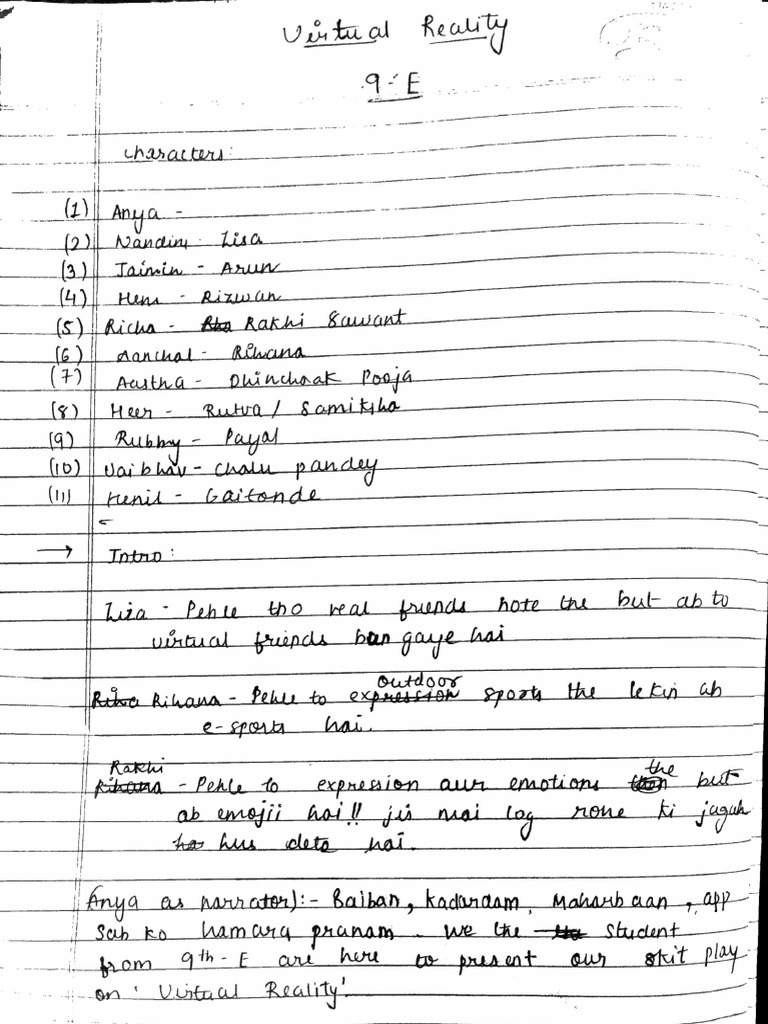 Virtual Reality
9-E
Characters:
(1) Anya -
(2) Nandini - Lisa
(3) Jaimin - Arun
(4) Hem - Rizwan
(5) Richa - Rakhi Sawant
(6) Aanchal - Rihana
(7) Aastha - Dhinchaak Pooja
(8) Heer - Rutva / Samiksha
(9) Rubby - Payal
(10) Vaibhav - Chalu pandey
(11) Henil - Gaitonde
→ Intro:
Liza - Pehle tho real friends hote the but ab to
virtual friends ban gaye hai
outdoor
Riha Rihana - Pehle to expression sports the lekin ab
e-sports hai.
Rakhi the
Rihana - Pehle to expression aur emotions but
ab emojii hai!! jis mai log rone ki jagah
ha hus deta hai.
(Anya as narrator):- Baiban, Kadardam, Maharbaan, app
Sab ko hamara pranam. We the student
from 9th-E are here to present our skit play
on 'Virtual Reality'.